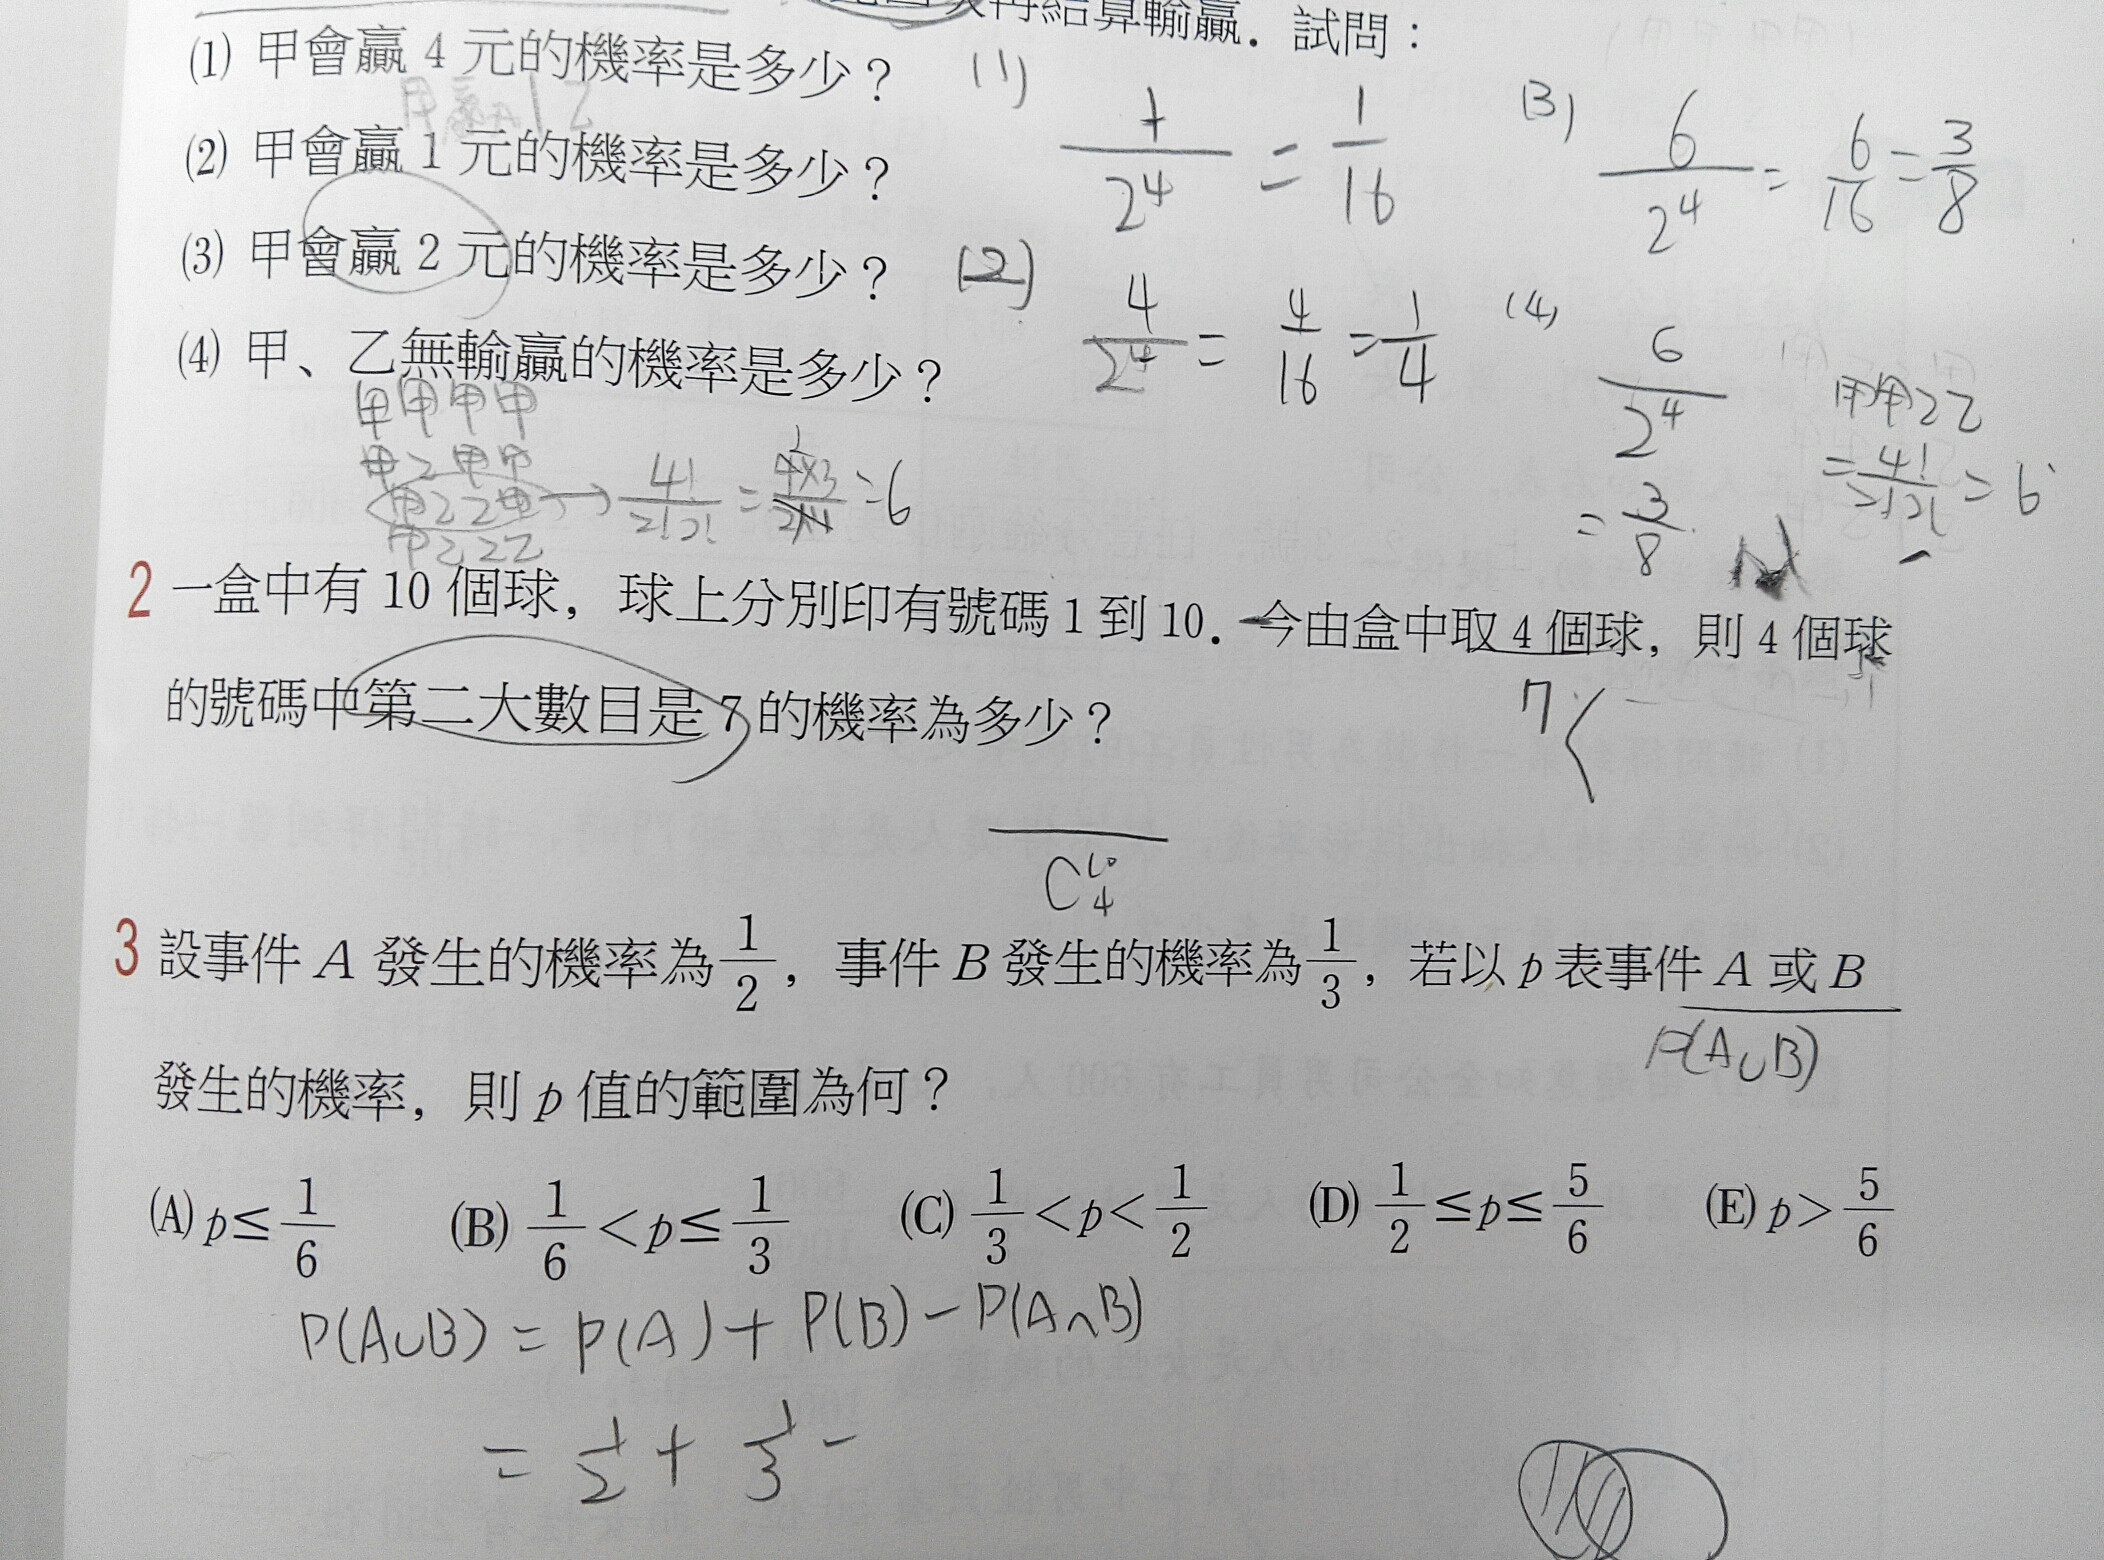 再結算輸贏．試問：
(1) 甲會贏 4 元的機率是多少？
甲贏 1 乙
(2) 甲會贏 1 元的機率是多少？
(3) 甲會贏 2 元的機率是多少？
(4) 甲、乙無輸贏的機率是多少？
(1) 1/2^4 = 1/16
(3) 6/2^4 = 6/16 = 3/8
(2) 4/2^4 = 4/16 = 1/4
(4) 6/2^4 = 3/8
甲甲乙乙
= 4!/2!2! = 6
甲甲甲甲
甲乙甲甲
甲乙乙甲 → 4!/2!2! = 4×3/2×1 = 6
甲乙乙乙
2 一盒中有 10 個球，球上分別印有號碼 1 到 10．今由盒中取 4 個球，則 4 個球
的號碼中第二大數目是 7 的機率為多少？
7<
C^10_4
3 設事件 A 發生的機率為 1/2，事件 B 發生的機率為 1/3，若以 p 表事件 A 或 B
P(A∪B)
發生的機率，則 p 值的範圍為何？
(A) p≤1/6 (B) 1/6<p≤1/3 (C) 1/3<p<1/2 (D) 1/2≤p≤5/6 (E) p>5/6
P(A∪B) = P(A) + P(B) − P(A∩B)
= 1/2 + 1/3 −